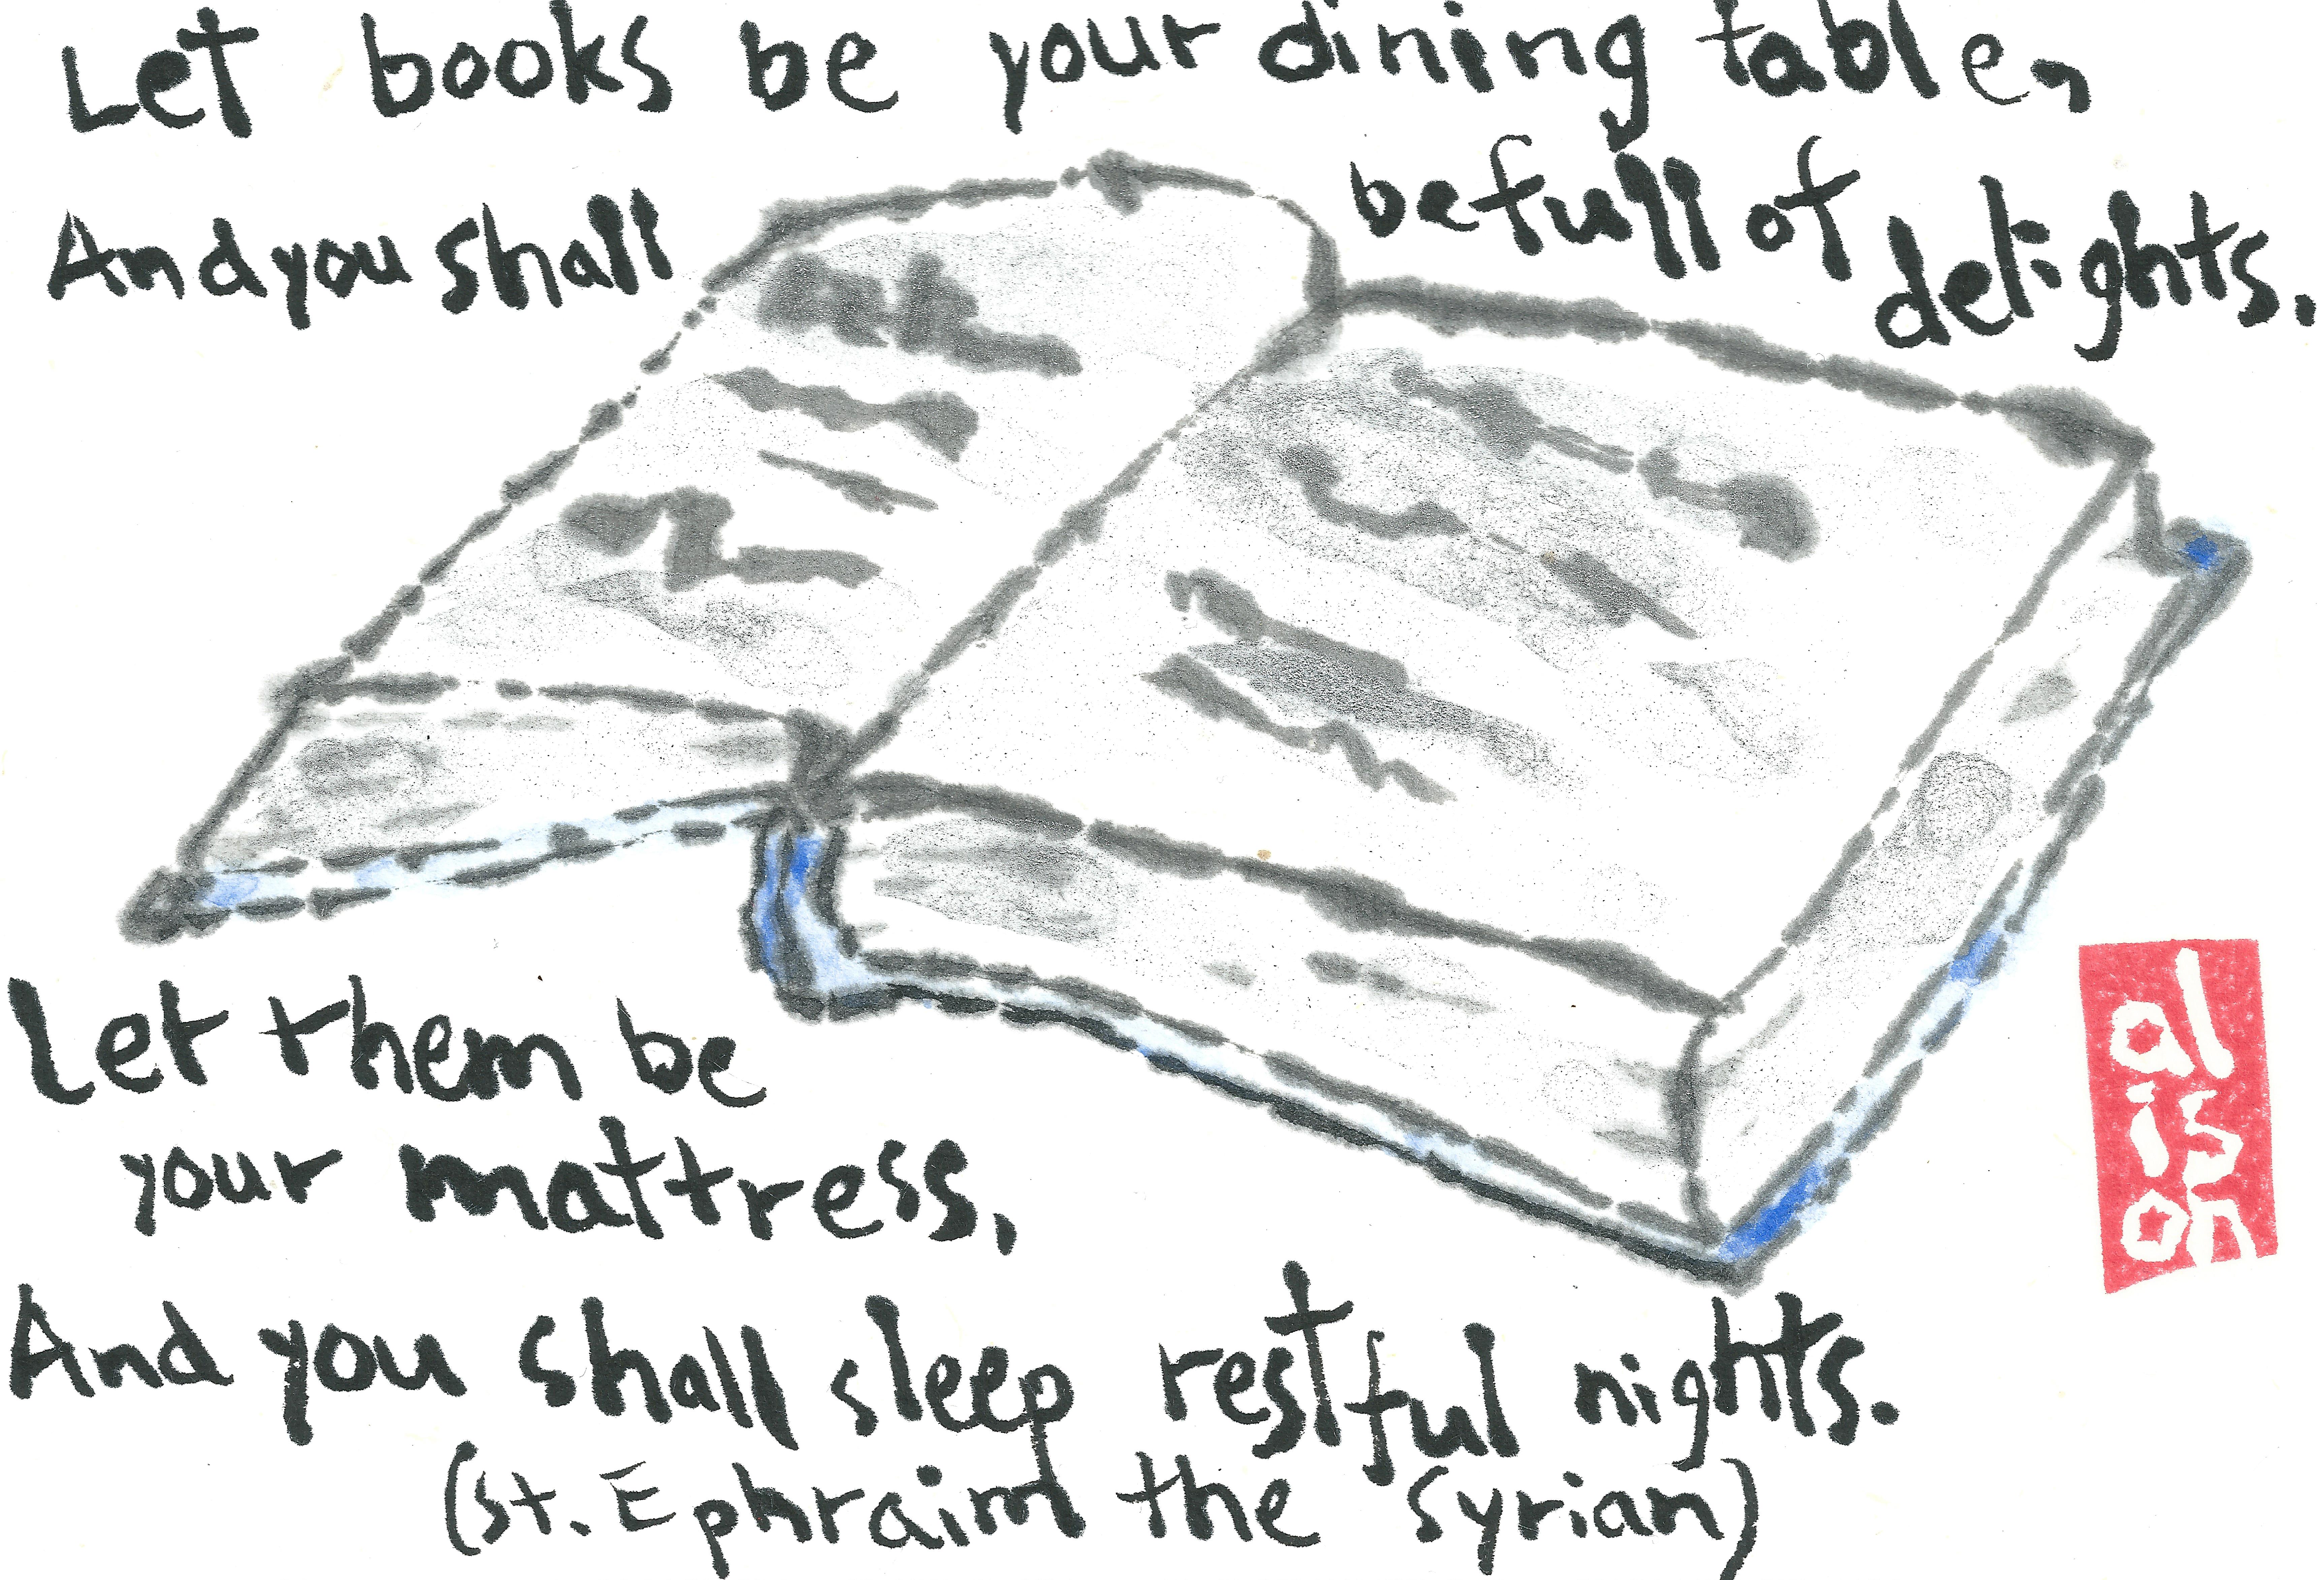 Let books be your dining table,
And you shall be full of delights.
Let them be
your mattress,
And you shall sleep restful nights.
(St. Ephraim the Syrian)
al
is
on